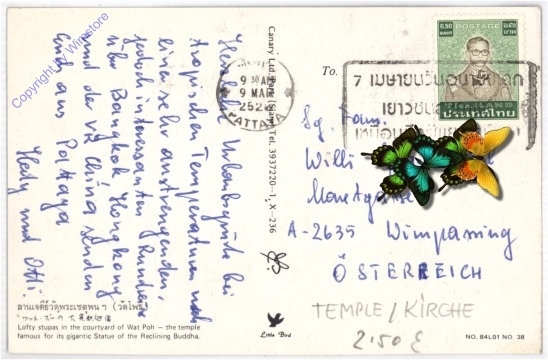 Copyright by Winstore
Herzliche Urlaubsgrüße bei
tropischen Temperaturen nach
einer sehr anstrengenden,
jedoch interessanten Rundreise
über Bangkok, Hongkong
und der VR China senden
Euch aus Pattaya
Hedy und Otti.
ลานเจดีย์วัตุพระเชตุพน ฯ (วัดโพธิ์)
Lofty stupas in the courtyard of Wat Poh — the temple
famous for its gigantic Statue of the Reclining Buddha.
Canary Ltd. Part. (Siam) Tel. 3937220-1, X-236
Little Bird
9 30AM
9 MAR
252
PATTAYA
7 เมษายนวันอนามัยโลก
6.50
BAHT
POSTAGE
๖.๕๐
บาท
THAILAND
ประเทศไทย
To.
Sg. Fam.
Willi
A-2635 Wimpassing
ÖSTERREICH
TEMPLE / KIRCHE
2.50 €
NO. 84L01 NO. 38